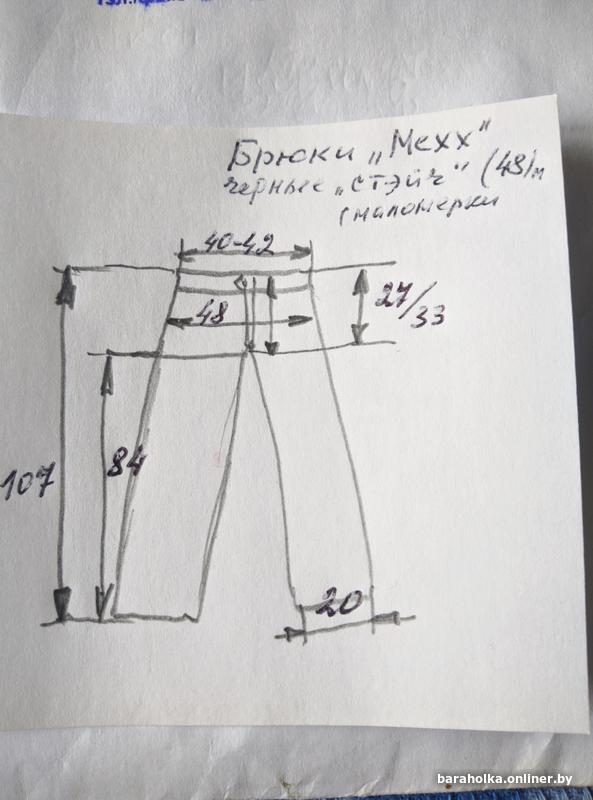 Брюки „Мехх"
черные „стэйч" (48)м
(маломерки
40-42
27/33
48
84
107
20
baraholka.onliner.by